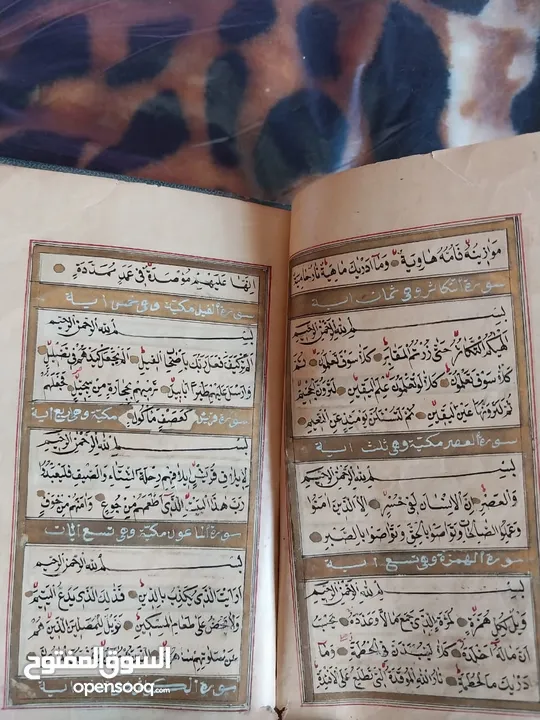 موازينه فامه هاوية وما ادريك ماهية نار حامية
سورة التكاثر وهي ثمان اية
بسم الله الرحمن الرحيم
الهيكم التكاثر حتى زرتم المقابر كلا سوف تعلمون ثم
كلا سوف تعلمون كلا لو تعلمون علم اليقين لترون الجحيم
ثم لترونها عين اليقين ثم لتسئلن يومئذ عن النعيم
سورة العصر مكية وهي ثلث اية
بسم الله الرحمن الرحيم
والعصر ان الانسان لفي خسر الا الذين امنوا
وعملوا الصالحات وتواصوا بالحق وتواصوا بالصبر
سورة الهمزة وهي تسع اية
بسم الله الرحمن الرحيم
ويل لكل همزة لمزة الذي جمع مالا وعدده يحسب
ان ماله اخلده كلا لينبذن في الحطمة وما
ادريك ما الحطمة نار الله الموقدة التي تطلع على الافئدة
انها عليهم مؤصدة في عمد ممددة
سورة الفيل مكية وهي خمس اية
بسم الله الرحمن الرحيم
الم تر كيف فعل ربك باصحاب الفيل الم يجعل كيدهم في تضليل
وارسل عليهم طيرا ابابيل ترميهم بحجارة من سجيل فجعلهم
كعصف ماكول
سورة قريش مكية وهي اربع اية
بسم الله الرحمن الرحيم
لايلاف قريش ايلافهم رحلة الشتاء والصيف فليعبدوا
رب هذا البيت الذي اطعمهم من جوع وامنهم من خوف
سورة الماعون مكية وهي تسع ايات
بسم الله الرحمن الرحيم
ارايت الذي يكذب بالدين فذلك الذي يدع اليتيم
ولا يحض على طعام المسكين فويل للمصلين الذين هم
عن صلاتهم ساهون
سورة اية
السوق المفتوح
opensooq.com